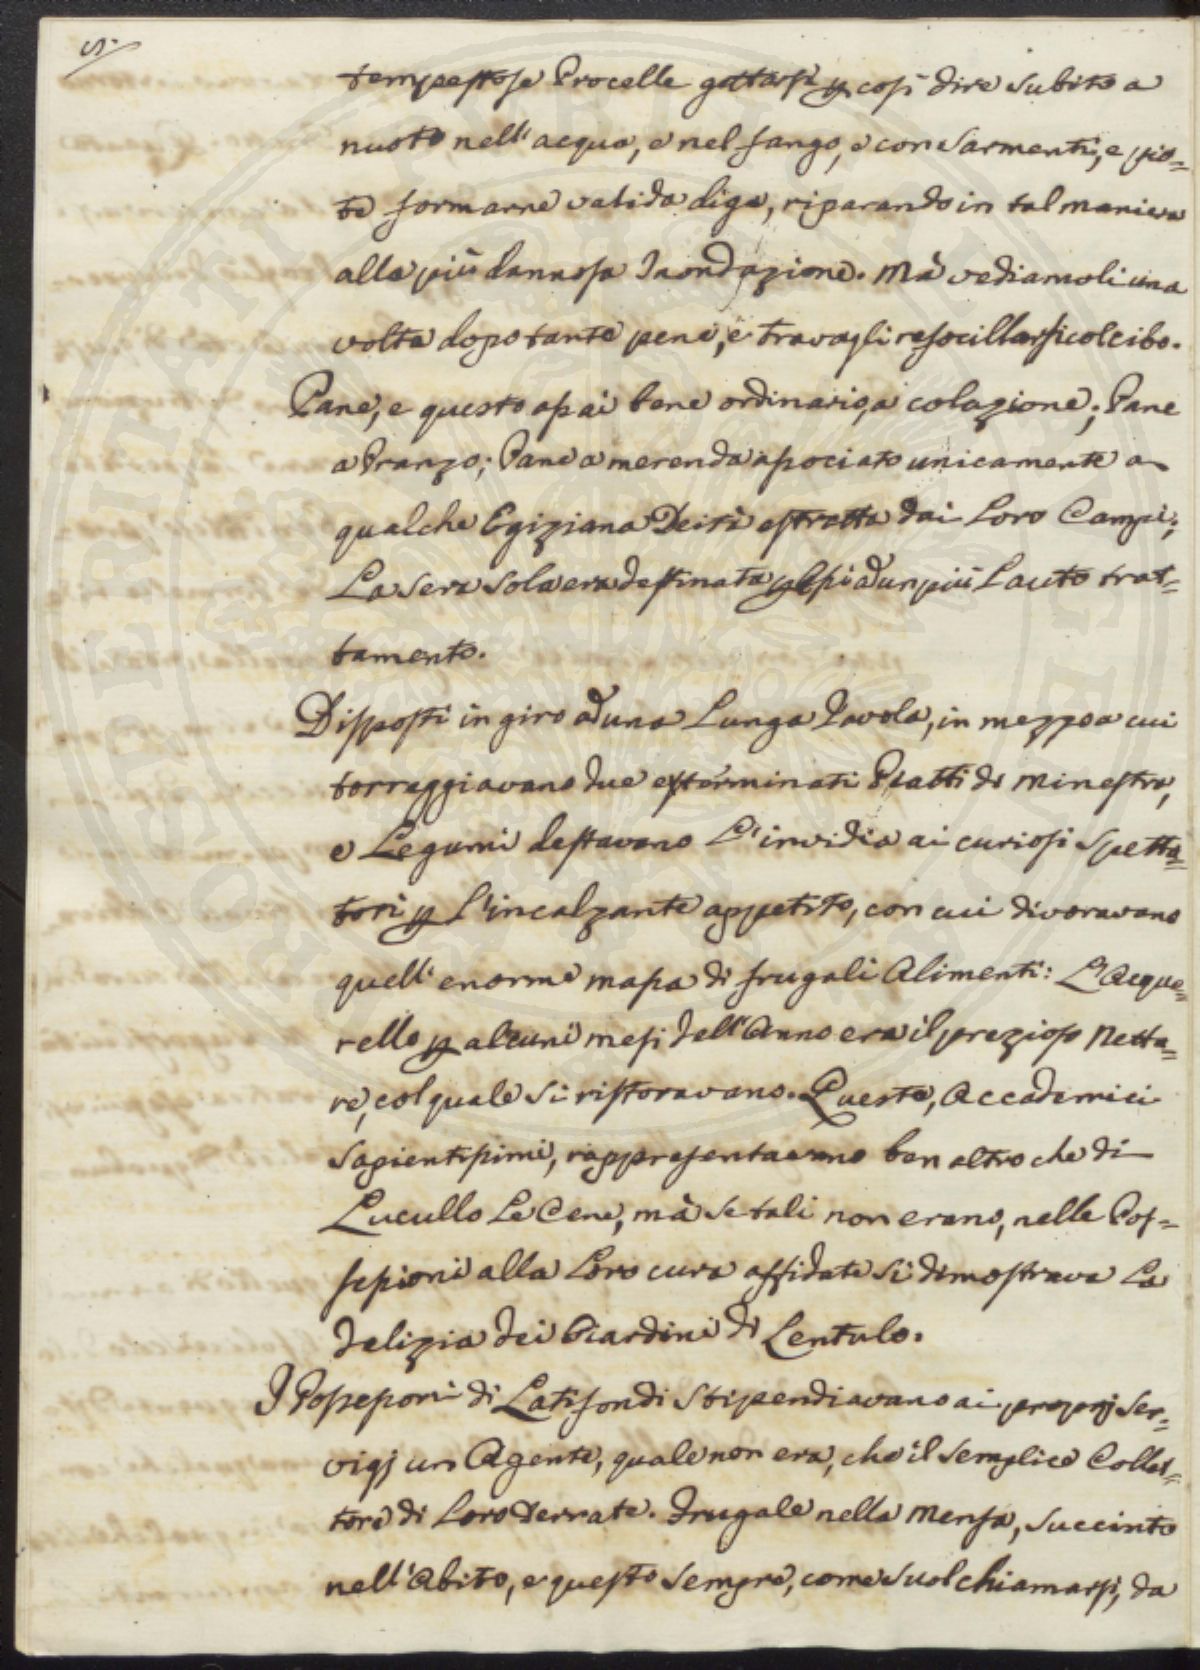 5.
tempestose Procelle gettarsi p così dire subito a
nuoto nell'acqua, e nel fango, e con Sarmenti, e pio=
te formarne valida diga, riparando in tal maniera
alla più dannosa Inondazione. Mà vediamoli una
volta dopo tante pene, e travagli refocillarsi col cibo.
Pane, e questo assai bene ordinario, a colazione; Pane
a Pranzo; Pane a merenda associato unicamente a
qualche Egiziana Deità estratta dai Loro Campi;
La Sera sola era destinata p Essi ad un più Lauto trat=
tamento.
Disposti in giro ad una Lunga Tavola, in mezzo a cui
torreggiavano due esterminati Piatti di Minestra,
e Legumi destavano L'invidia ai curiosi Spetta=
tori p L'incalzante appetito, con cui divoravano
quell'enorme massa di frugali Alimenti: L'Acque=
rello p alcuni mesi dell'Anno era il prezioso Netta=
re, col quale si ristoravano. Queste, Accademici
Sapientissimi, rappresentavano ben altro che di
Lucullo Le Cene, mà se tali non erano, nelle Pos=
sessioni alla Loro cura affidate si dimostrava La
delizia dei Giardini di Lentulo.
I Possessori di Latifondi Stipendiavano ai proprj Ser=
vigj un Agente, quale non era, che il Semplice Collet=
tore di Loro Derrate. Frugale nella Mensa, Succinto
nell'Abito, e questo Sempre, come Suol chiamarsi, da